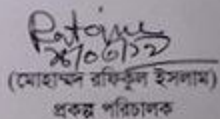 (মোহাম্মদ রফিকুল ইসলাম)
প্রকল্প পরিচালক